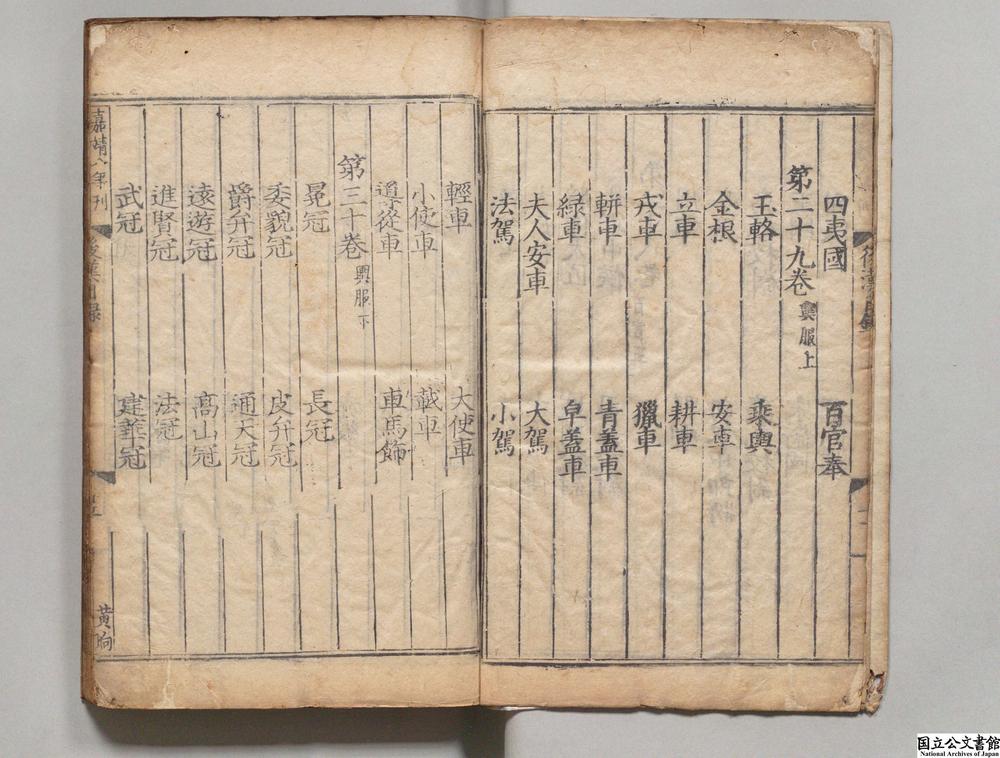 四夷國　百官奉
第二十九卷 輿服上
玉輅　乘輿
金根　安車
立車　耕車
戎車　獵車
軿車　青蓋車
綠車　皁蓋車
夫人安車　大駕
法駕　小駕
輕車　大使車
小使車　載車
導從車　車馬飾
第三十卷 輿服下
冕冠　長冠
委貌冠　皮弁冠
爵弁冠　通天冠
遠遊冠　高山冠
進賢冠　法冠
武冠　建華冠
嘉靖八年刊
黃昫
国立公文書館
National Archives of Japan